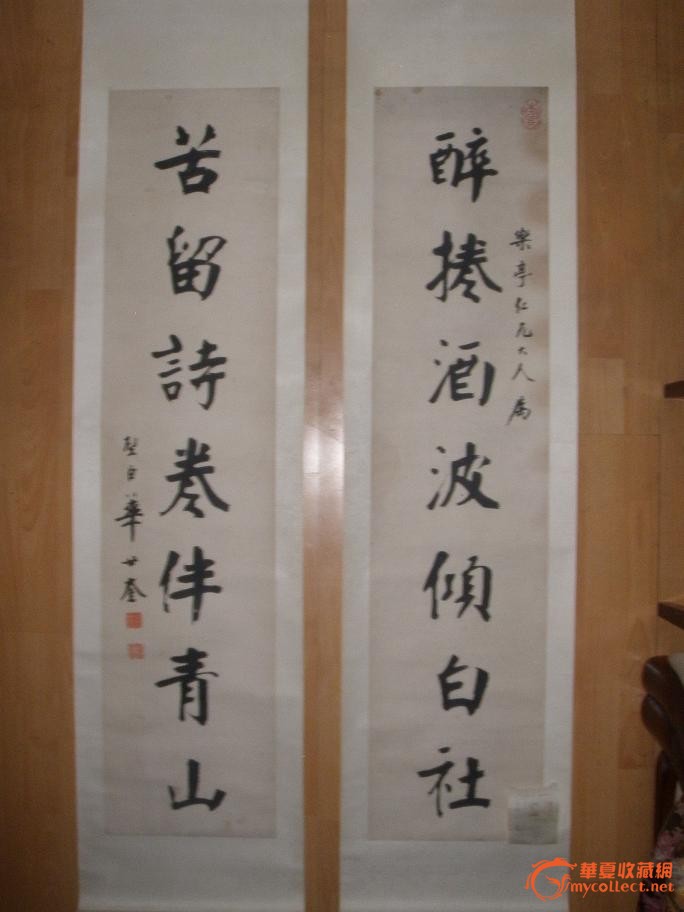 樂亭仁兄大人屬
醉捲酒波傾白社
苦留詩卷伴青山
璧臣華世奎
華夏收藏網
mycollect.net